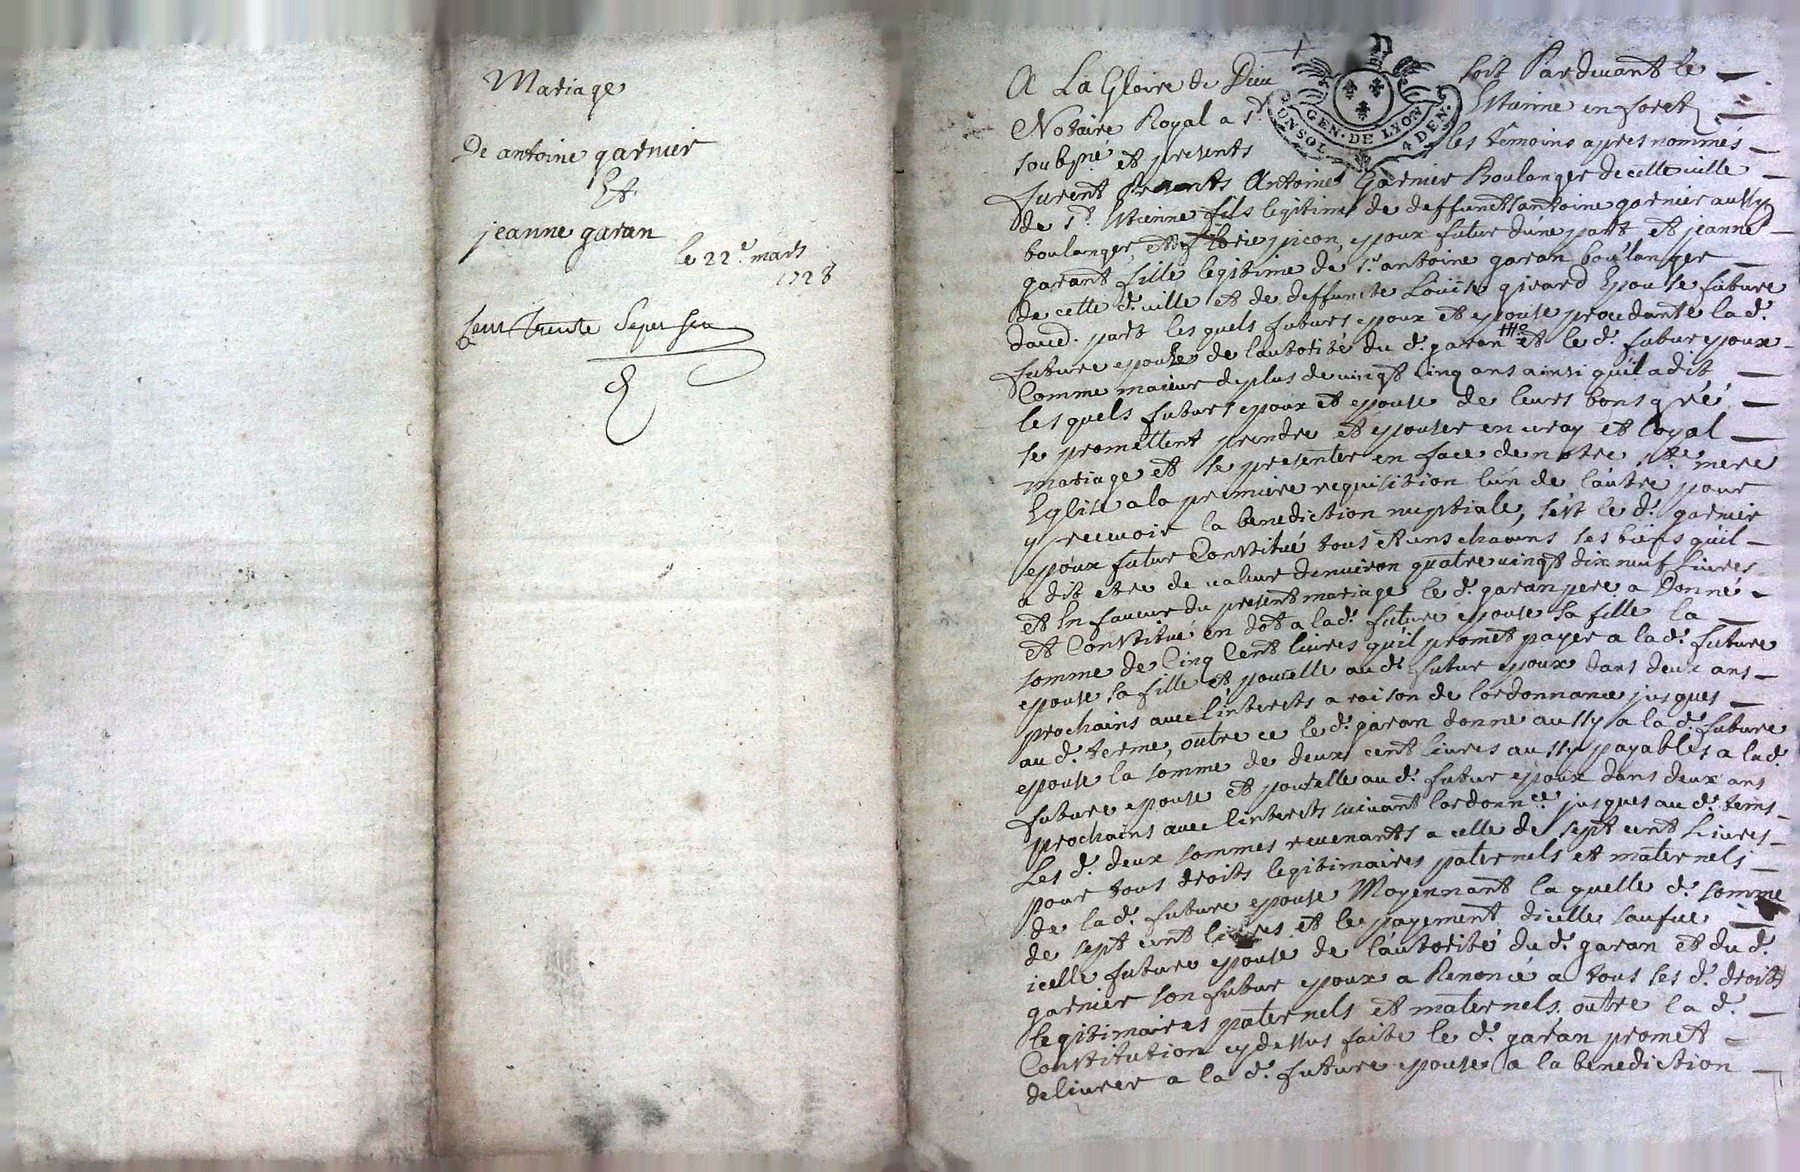 Mariage
De antoine garnier
Et
jeanne garan
le 22e. mars
1728
Cent Trente Sept
A La Gloire de Dieu soit Pardevant le
Notaire Royal a St Estienne en foret
soubsné et presents les témoins apres nommés
furent presents Antoine Garnier Boulanger de cette ville
de St. Estienne fils legitime de deffunct antoine garnier aussy
boulanger, et de florie picon, epoux futur dune part et jeanne
garant fille legitime de Sr. antoine garan boulanger
de cette d. ville et de deffuncte Louise girard Epouse future
daud. part lesquels futurs epoux et epouse procedante la d.
future epouse de lautorité du d. garan et le d. futur epoux
Comme majeur de plus de vingt cinq ans ainsi quil a dit
lesquels futurs epoux et epouse de leurs bons gré
se promettent prendre et epouser en vray et loyal
mariage et se presenter en face de notre Ste mere
Eglise a la premiere requisition lun de l'autre pour
y recevoir la benediction nuptiale, s'est le d. garnier
epoux futur Constitué tous et uns chacuns ses biens quil
a dit etre de valeur denuiron quatre vingt dix neuf Livres
et En faveur du present mariage le d. garan pere a Donné
et Constitué en dot a la d. future epouse sa fille la
somme de Cinq Cent livres qu'il promet payer a la d. future
epouse sa fille et pour elle au d. futur epoux dans deux ans
prochains avec l'interets a raison de lordonnance jusques
au d. terme, outre ce le d. garan donne aussy a la d. future
epouse la somme de deux cent livres aussy payables a la d.
future epouse et pour elle au d. futur epoux dans deux ans
prochains avec linterets suivant lordonnce. jusques au d. tems
Les d. deux sommes revenants a celle de sept cent Livres
pour tous droits legitimaires paternels et maternels
de la d. future epouse Moyennant laquelle d. somme
de sept cent livres et le payement dicelle
icelle future epouse de l'autorité du d. garan et du d.
garnier son futur epoux a Renoncé a tous ses d. droits
legitimaires paternels et maternels. outre la d.
Constitution cy dessus faite le d. garan promet
delivrer a la d. future epouse a la benediction
GEN. DE LYON
4 DEN.